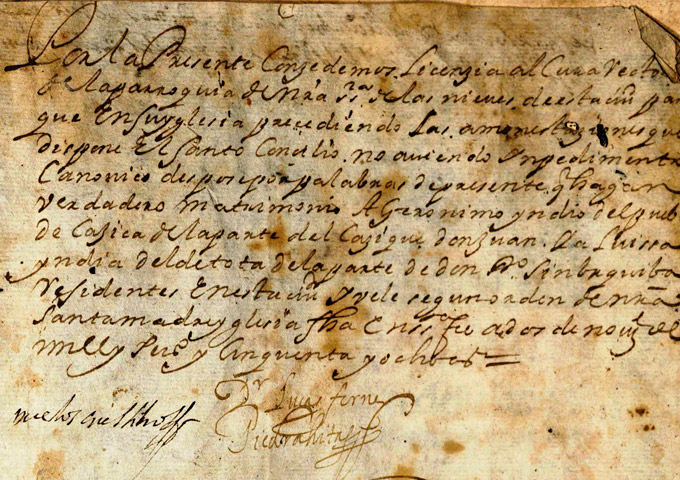 Por la Presente Consedemos Licenzia al Cura Rector
de la parroquia de Nra Sra de las nieves de esta ciud para
que En su yglesia precediendo Las amonestaziones que
dispone El Santo Concilio no auiendo Ynpedimento
Canonico despose por palabras de presente q hagan
Verdadero matrimonio A Geronimo yndio del pueb
de Casica de la parte del Casique don Juan Y a Luissa
yndia del de tota de la parte de don Po
Residentes En esta ciud Y vele segun orden de Nra
Santa madre yglesia fha En Sta fe a dos de nouie de
mill y Seis y Cinquenta y ocho as
Dr Lucas ferne
Piedrahita